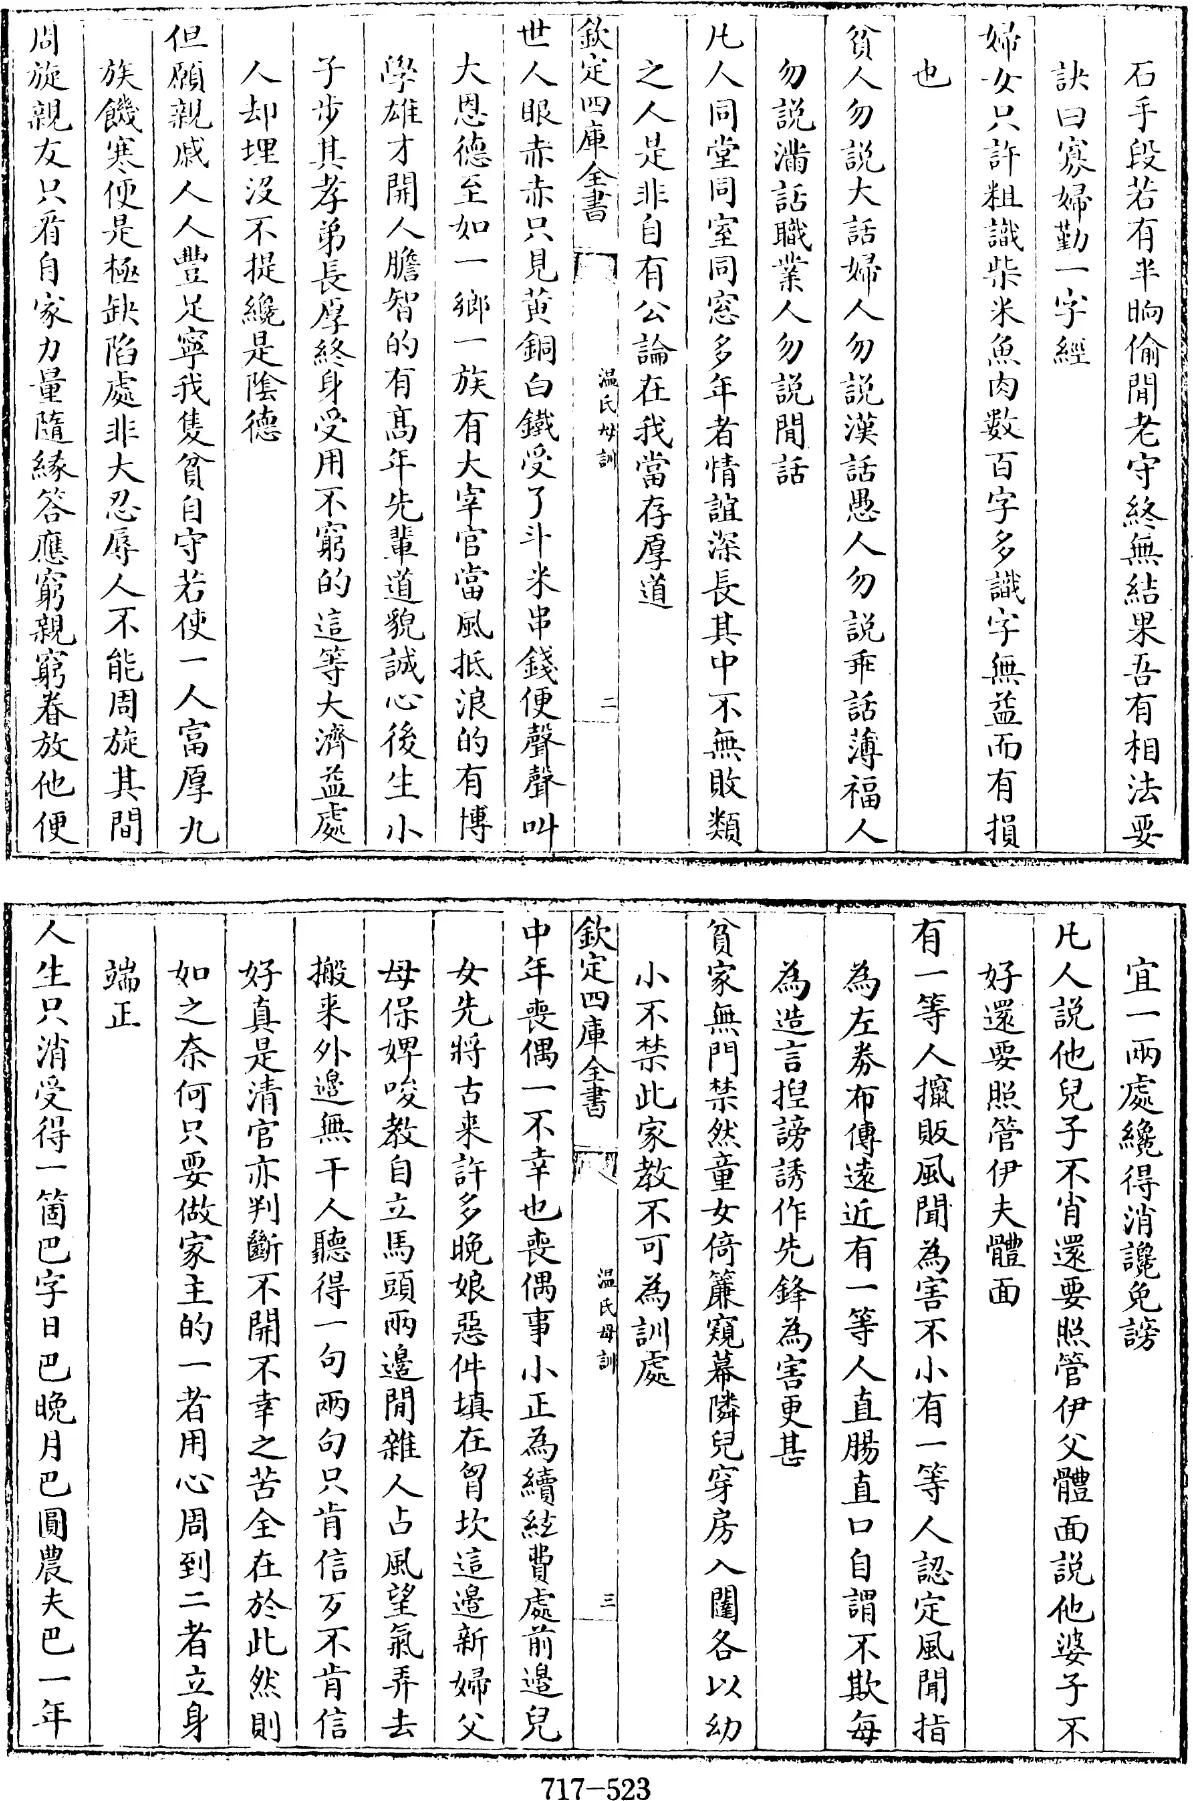 石手段若有半晌偷閒老守終無結果吾有相法要
訣曰寡婦勤一字經
婦女只許粗識柴米魚肉數百字多識字無益而有損
也
貧人勿說大話婦人勿說漢話愚人勿說乖話薄福人
勿說滿話職業人勿說閒話
凡人同堂同室同窓多年者情誼深長其中不無敗類
之人是非自有公論在我當存厚道
欽定四庫全書
温氏母訓
二
世人眼赤赤只見黃銅白鐵受了斗米串錢便聲聲叫
大恩德至如一鄉一族有大宰官當風抵浪的有博
學雄才開人膽智的有高年先輩道貌誠心後生小
子步其孝弟長厚終身受用不窮的這等大濟益處
人却埋沒不提纔是陰德
但願親戚人人豐足寧我隻貧自守若使一人富厚九
族饑寒便是極缺陷處非大忍辱人不能周旋其間
周旋親友只看自家力量隨緣答應窮親窮眷放他便
宜一兩處纔得消讒免謗
凡人說他兒子不肖還要照管伊父體面說他婆子不
好還要照管伊夫體面
有一等人攛販風聞為害不小有一等人認定風聞指
為左券布傳遠近有一等人直腸直口自謂不欺每
為造言揑謗誘作先鋒為害更甚
貧家無門禁然童女倚簾窺幕隣兒穿房入闥各以幼
小不禁此家教不可為訓處
欽定四庫全書
温氏母訓
三
中年喪偶一不幸也喪偶事小正為續絃費處前邊兒
女先將古来許多晚娘惡件填在胷坎這邊新婦父
母保婢唆教自立馬頭兩邊閒雜人占風望氣弄去
搬来外邊無干人聽得一句兩句只肯信歹不肯信
好真是清官亦判斷不開不幸之苦全在於此然則
如之奈何只要做家主的一者用心周到二者立身
端正
人生只消受得一箇巴字日巴晚月巴圓農夫巴一年
717-523